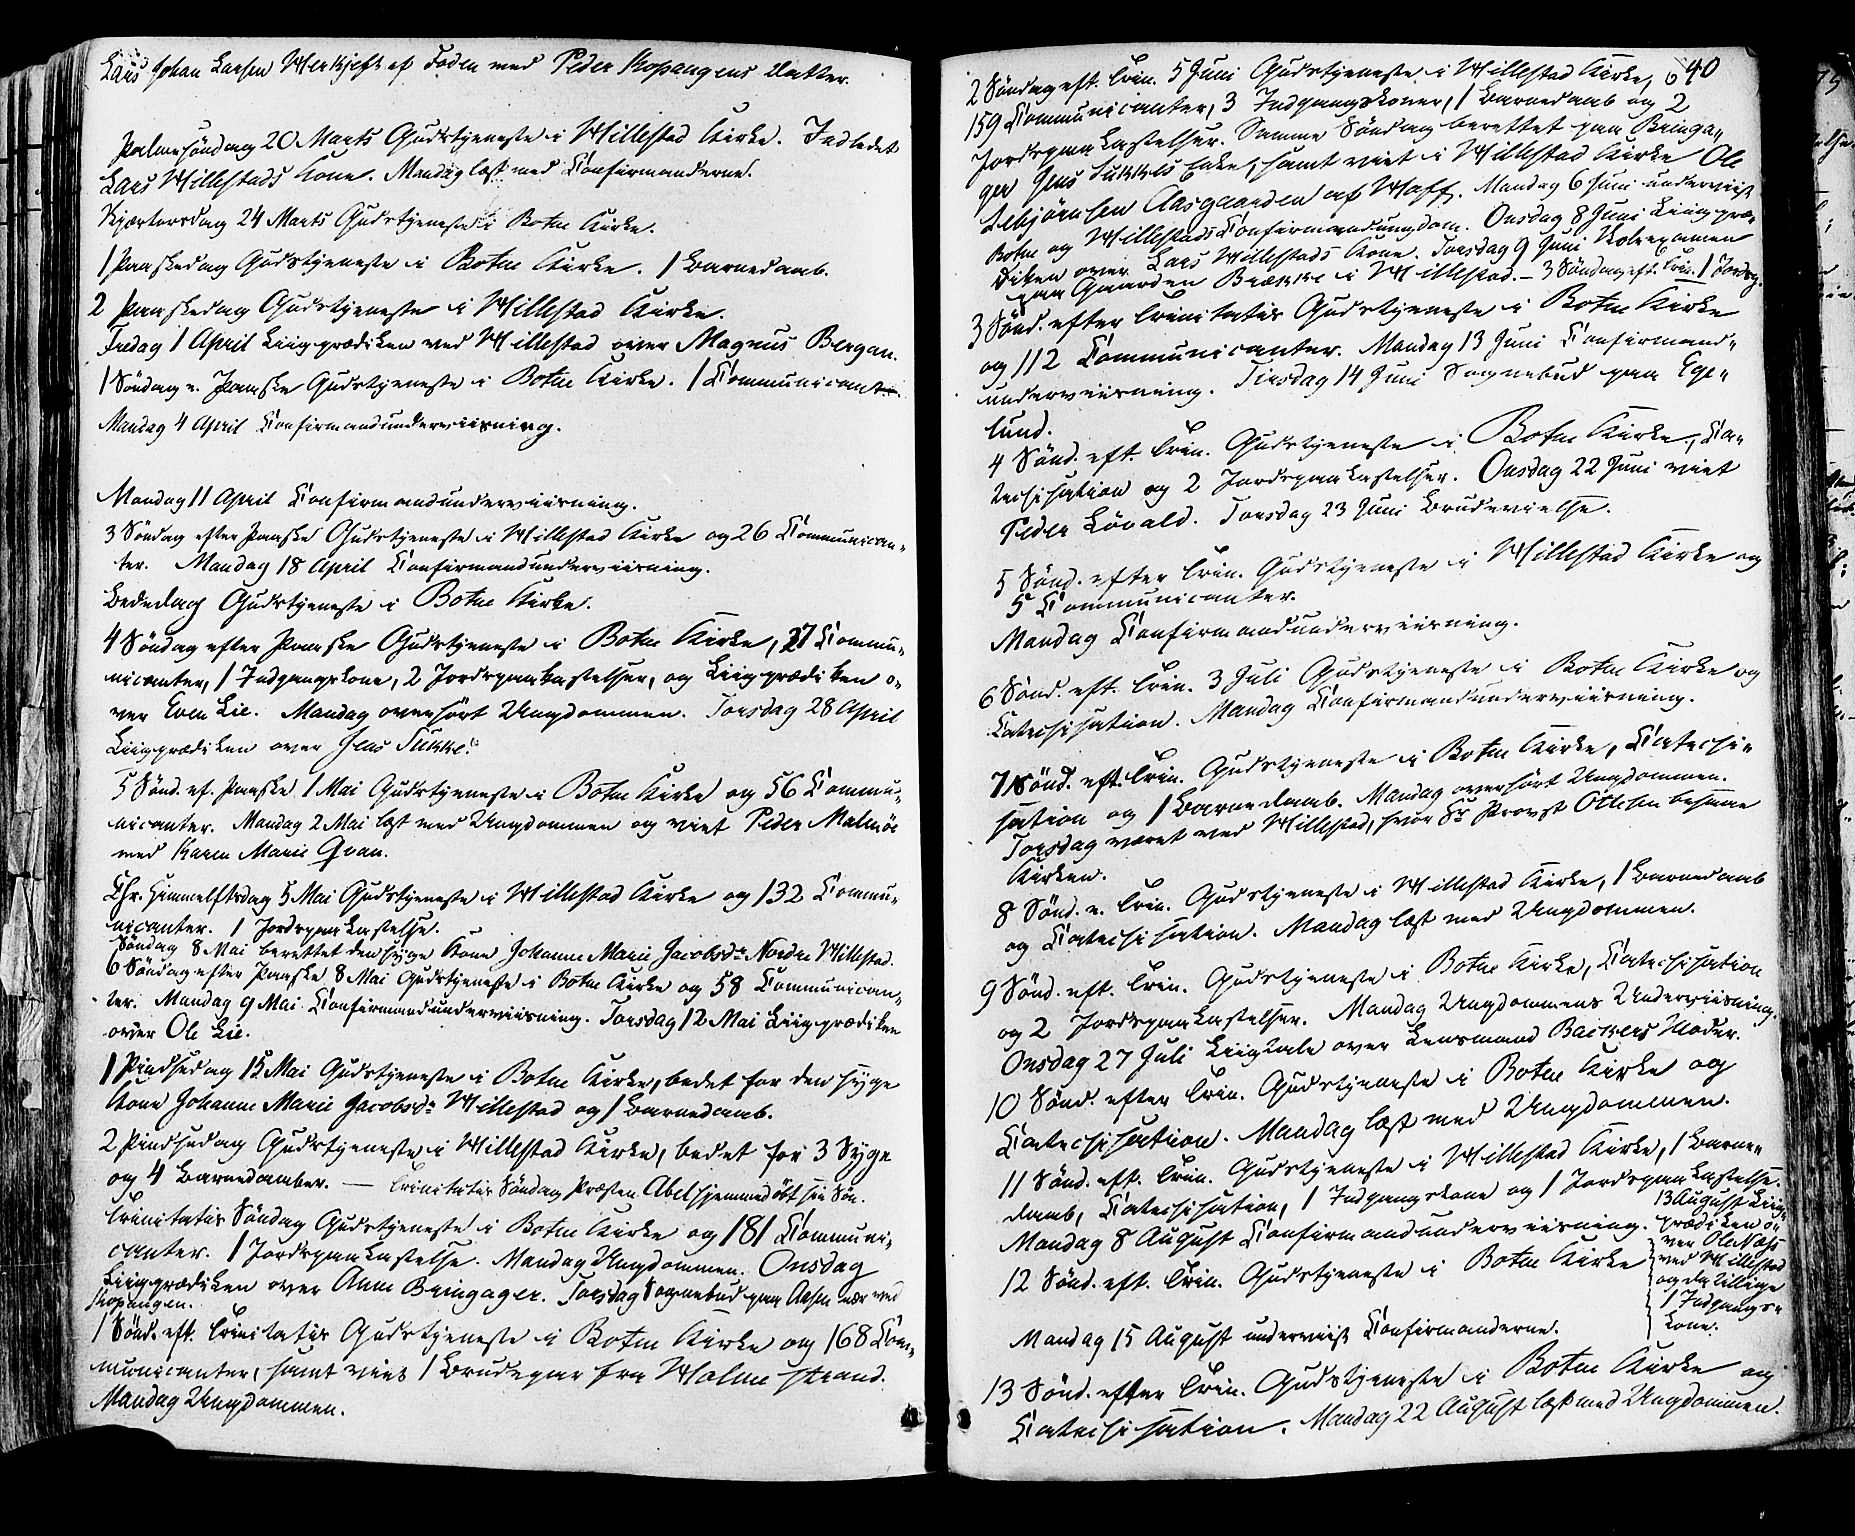 Lars Johan Larsen Værkjeft af Foden med Peder Kopangens Datter.
Palmesöndag 20 Marts Gudstjeneste i Hillestad Kirke. Indledet
Lars Hillestads Kone. Mandag læst med Confirmanderne.
Skjærtorsdag 24 Marts Gudstjeneste i Botne Kirke.
1 Paaskedag Gudstjeneste i Botne Kirke. 1 Barnedaab.
2 Paaskedag Gudstjeneste i Hillestad Kirke.
Fredag 1 April Liigprædiken ved Hillestad over Magnus Bergan.
1 Söndag e. Paaske Gudstjeneste i Botne Kirke. 1 Communicant.
Mandag 4 April Confirmandunderviisning.
Mandag 11 April Confirmandunderviisning.
3 Söndag efter Paaske Gudstjeneste i Hillestad Kirke og 26 Communican-
ter. Mandag 18 April Confirmandunderviisning.
Bededag Gudstjeneste i Botne Kirke.
4 Söndag efter Paaske Gudstjeneste i Botne Kirke, 27 Commu-
nicanter, 1 Indgangskone, 2 Jordspaakastelser, og Liigprædiken o-
ver Even Lie. Mandag overhört Ungdommen. Torsdag 28 April
Liigprædiken over Jens Sukke.
5 Sönd. ef. Paaske 1 Mai Gudstjeneste i Botne Kirke og 56 Commu-
nicanter. Mandag 2 Mai læst med Ungdommen og viet Peder Malmöe
med Karen Marie Gran.
Chr. Himmelftsdag 5 Mai Gudstjeneste i Hillestad Kirke og 132 Commu-
nicanter. 1 Jordspaakastelse.
Söndag 8 Mai berettet den syge Kone Johanne Marie Jacobsdr Nordre Hillestad.
6 Söndag efter Paaske 8 Mai Gudstjeneste i Botne Kirke og 58 Communican-
ter. Mandag 9 Mai Confirmandunderviisning. Torsdag 12 Mai Liigprædiken
over Ole Lie.
1 Pindsedag 15 Mai Gudstjeneste i Botne Kirke, bedet for den syge
Kone Johanne Marie Jacobsdr Hillestad og 1 Barnedaab.
2 Pindsedag Gudstjeneste i Hillestad Kirke, bedet for 3 Syge
og 4 Barnedaaber. — Trinitatis Söndag Præsten Abel hjemmedöbt sin Sön.
Trinitatis Söndag Gudstjeneste i Botne Kirke og 181 Communi-
canter. 1 Jordspaakastelse. Mandag Ungdommen. Onsdag
Liigprædiken over Anne Bringager. Torsdag Sognebud paa Aasen nær ved
Kopangen.
1 Sönd. eft. Trinitatis Gudstjeneste i Botne Kirke og 168 Com-
municanter, samt viet 1 Brudepar fra Holmestrand.
Mandag Ungdommen.
640
2 Söndag eft. Trin. 5 Juni Gudstjeneste i Hillestad Kirke,
159 Communicanter, 3 Indgangskoner, 1 Barnedaab og 2
Jordspaakastelser. Samme Söndag berettet paa Bringa-
ger Jens Sukkes Enke, samt viet i Hillestad Kirke Ole
Asbjörnsen Aasgaarden af Hoff. Mandag 6 Juni underviist
Botne og Hillestads Confirmandungdom. Onsdag 8 Juni Liigpræ-
diken over Lars Hillestads Kone. Torsdag 9 Juni Skoleexamen
paa Gaarden Brække i Hillestad. — 3 Söndag eft. Trin. 1 Jordsp.
3 Sönd. efter Trinitatis Gudstjeneste i Botne Kirke
og 112 Communicanter. Mandag 13 Juni Confirmand-
underviisning. Tirsdag 14 Juni Sognebud paa Ege-
lund.
4 Sönd. eft. Trin. Gudstjeneste i Botne Kirke, Ca-
techisation og 2 Jordspaakastelser. Onsdag 22 Juni viet
Peder Lövald. Torsdag 23 Juni Brudevielse.
5 Sönd. efter Trin. Gudstjeneste i Hillestad Kirke og
5 Communicanter.
Mandag Confirmandunderviisning.
6 Sönd. eft. Trin. 3 Juli Gudstjeneste i Botne Kirke og
Catechisation. Mandag Confirmandunderviisning.
7 Sönd. eft. Trin. Gudstjeneste i Botne Kirke, Catechi-
sation og 1 Barnedaab. Mandag overhört Ungdommen.
Torsdag været ved Hillestad, hvor Hr Provst Ottesen besaae
Kirken.
8 Sönd. e. Trin. Gudstjeneste i Hillestad Kirke, 1 Barnedaab
og Catechisation. Mandag læst med Ungdommen.
9 Sönd. eft. Trin. Gudstjeneste i Botne Kirke, Catechisation
og 2 Jordspaakastelser. Mandag Ungdommens Underviisning.
Onsdag 27 Juli Liigtale over Lensmand Backers Moder.
10 Sönd. efter Trin. Gudstjeneste i Botne Kirke og
Catechisation. Mandag læst med Ungdommen.
11 Sönd. eft. Trin. Gudstjeneste i Hillestad Kirke, 1 Barne-
daab, Catechisation, 1 Indgangskone og 1 Jordspaakastelse.
Mandag 8 August Confirmandunderviisning.
12 Sönd. eft. Trin. Gudstjeneste i Botne Kirke
13 August Liig-
prædiken o-
ver Ole Næss
ved Hillestad
og der tillige
1 Indgangs-
kone.
Mandag 15 August underviist Confirmanderne.
13 Sönd. efter Trin. Gudstjeneste i Botne Kirke og
Catechisation. Mandag 22 August læst med Ungdommen.